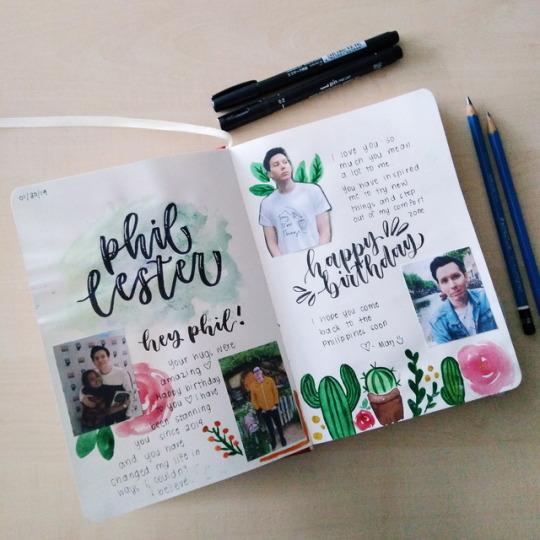 01/30/19
phil
lester
hey phil!
your hugs were
amazing ♡
Happy birthday
to you ♡ i have
been stanning
you since 2014
and you have
changed my life in
ways i couldn't
believe.
I love you so
much you mean
a lot to me.
You have inspired
me to try new
things and step
out of my comfort
zone.
happy
birthday
I hope you come
back to the
Philippines soon
♡- Man